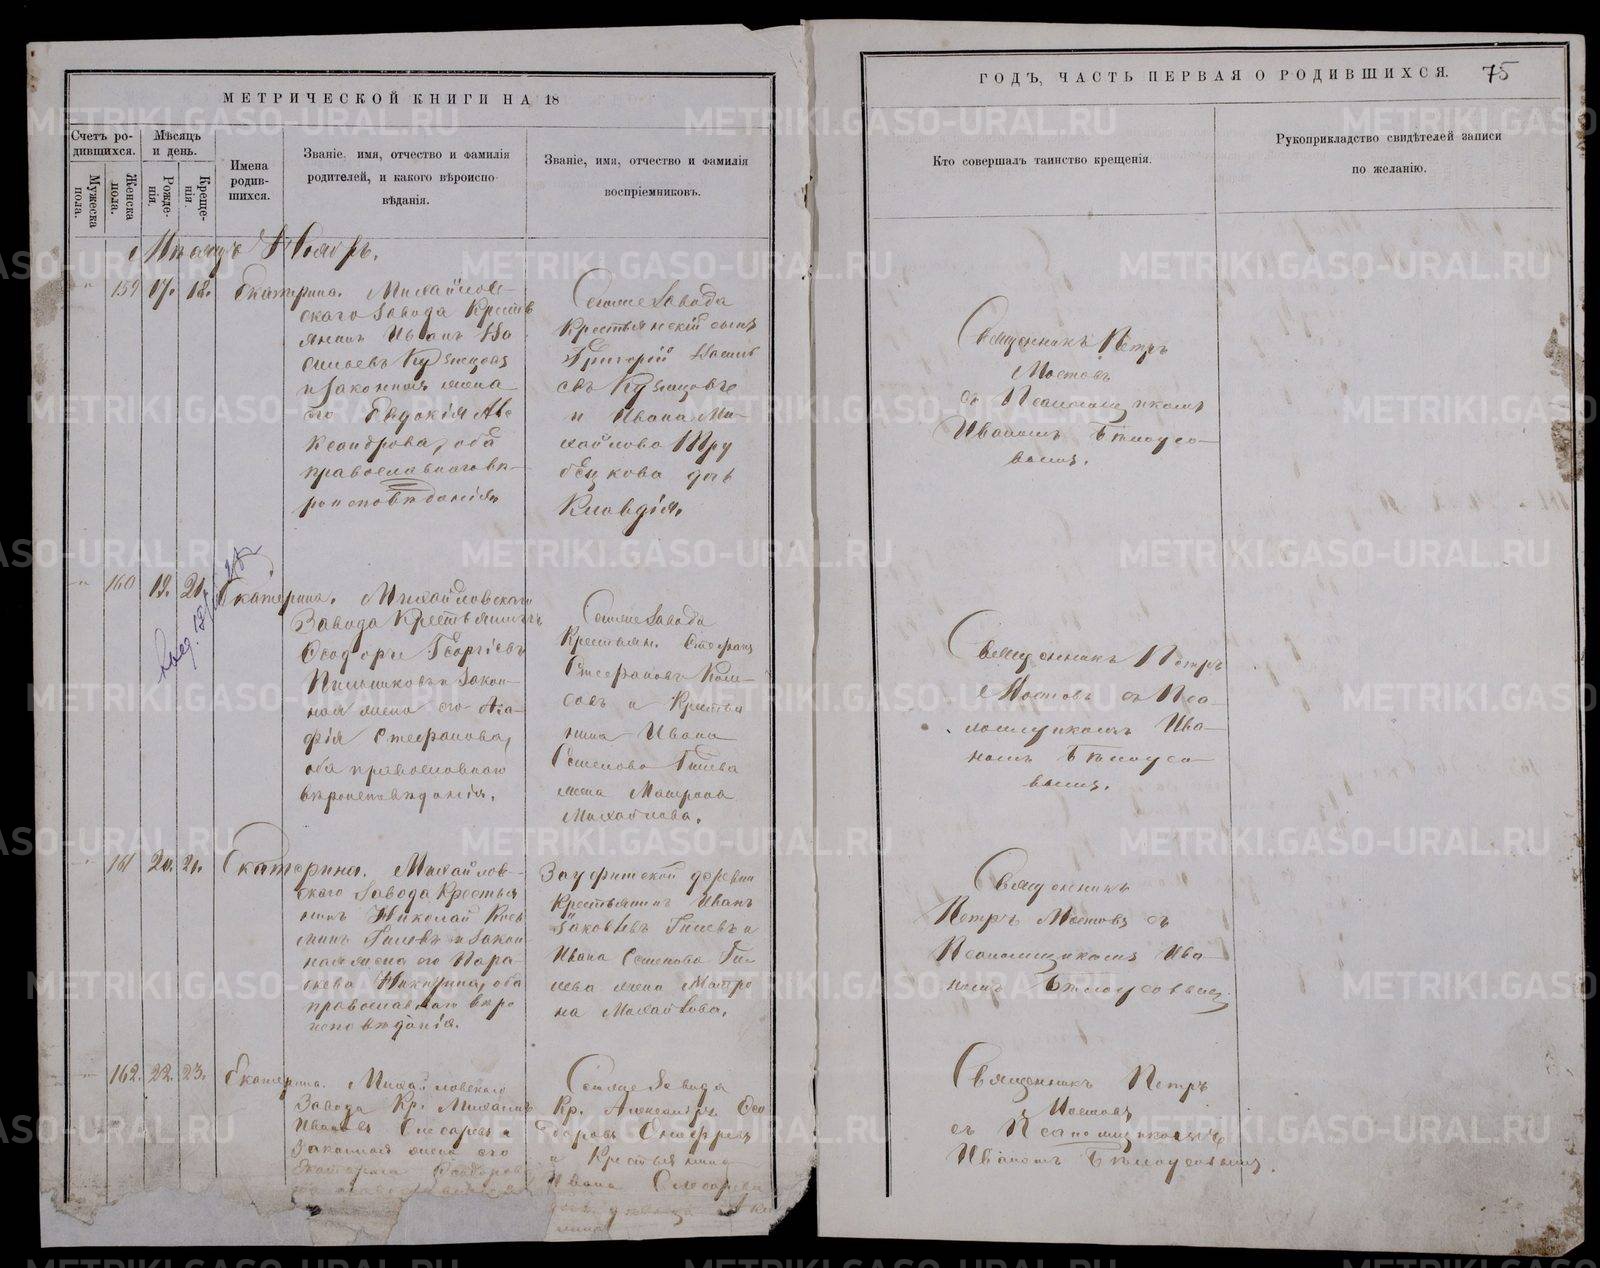 МЕТРИЧЕСКОЙ КНИГИ НА 18
Счетъ ро-
дившихся.
Мѣсяцъ
и день.
Мужеска
пола.
Женска
пола.
Рожде-
нія.
Креще-
нія.
Имена
родив-
шихся.
Званіе, имя, отчество и фамилія
родителей, и какого вѣроиспо-
вѣданія.
Званіе, имя, отчество и фамилія
воспріемниковъ.
Мѣсяцъ Ноябрь.
159 17. 18. Екатерина.
Михайлов-
скаго Завода Кресть
янинъ Иванъ Ва
сильевъ Кузнецовъ
и законная жена
его Евдокія Але
ксандрова, оба
православнаго вѣ-
роисповѣданія
Тогоже Завода
Крестьянскій сынъ
Григорій Василь
евъ Кузнецовъ
и Ивана Ми-
хайлова Тру
бѣцкова дочь
Клавдія.
160 19. 21. Екатерина.
Михайловскаго
Завода Крестьянинъ
Ѳеодоръ Георгіевъ
Пильниковъ и закон-
ная жена его Ага-
фія Стефанова,
оба православнаго
вѣроисповѣданія.
Тогоже Завода
Крестьян. Стефанъ
Стефановъ
и Крестья
нина Ивана
Семенова Гилева
жена Матрона
Михайлова.
161 20. 21. Екатерина.
Михайлов-
скаго Завода Крестья
нинъ Николай Козь
минъ Гилевъ и закон-
ная жена его Пара-
скева Никитина, оба
православнаго вѣро
исповѣданія.
Зауфимской деревни
Крестьянинъ Иванъ
Яковлевъ Гилевъ и
Ивана Семенова Ги-
лева жена Матро
на Михайлова.
162. 22. 23. Екатерина.
Михайловскаго
Завода Кр. Михаилъ
Ивановъ Слесаревъ и
законная жена его
Екатерина
Тогоже Завода
Кр. Александръ Ѳео
доровъ
и Крестьянина
Ивана Слесарева
ГОДЪ, ЧАСТЬ ПЕРВАЯ О РОДИВШИХСЯ.
75
Кто совершалъ таинство крещенія.
Рукоприкладство свидѣтелей записи
по желанію.
Священникъ Петръ
Мостовъ
съ Псаломщикомъ
Иваномъ Бѣлоусо-
вымъ.
Священникъ Петръ
Мостовъ съ Пса-
ломщикомъ Ива-
номъ Бѣлоусо-
вымъ.
Священникъ
Петръ Мостовъ съ
Псаломщикомъ Ива-
номъ Бѣлоусовымъ
Священникъ Петръ
Мостовъ
съ Псаломщикомъ
Иваномъ Бѣлоусовымъ.
METRIKI.GASO-URAL.RU